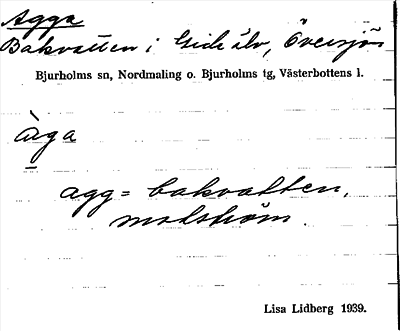 Agga
Bakvatten i Gide älv, Översjö
Bjurholms sn, Nordmaling o. Bjurholms tg, Västerbottens l.
àga
agg = bakvatten,
motström.
Lisa Lidberg 1939.